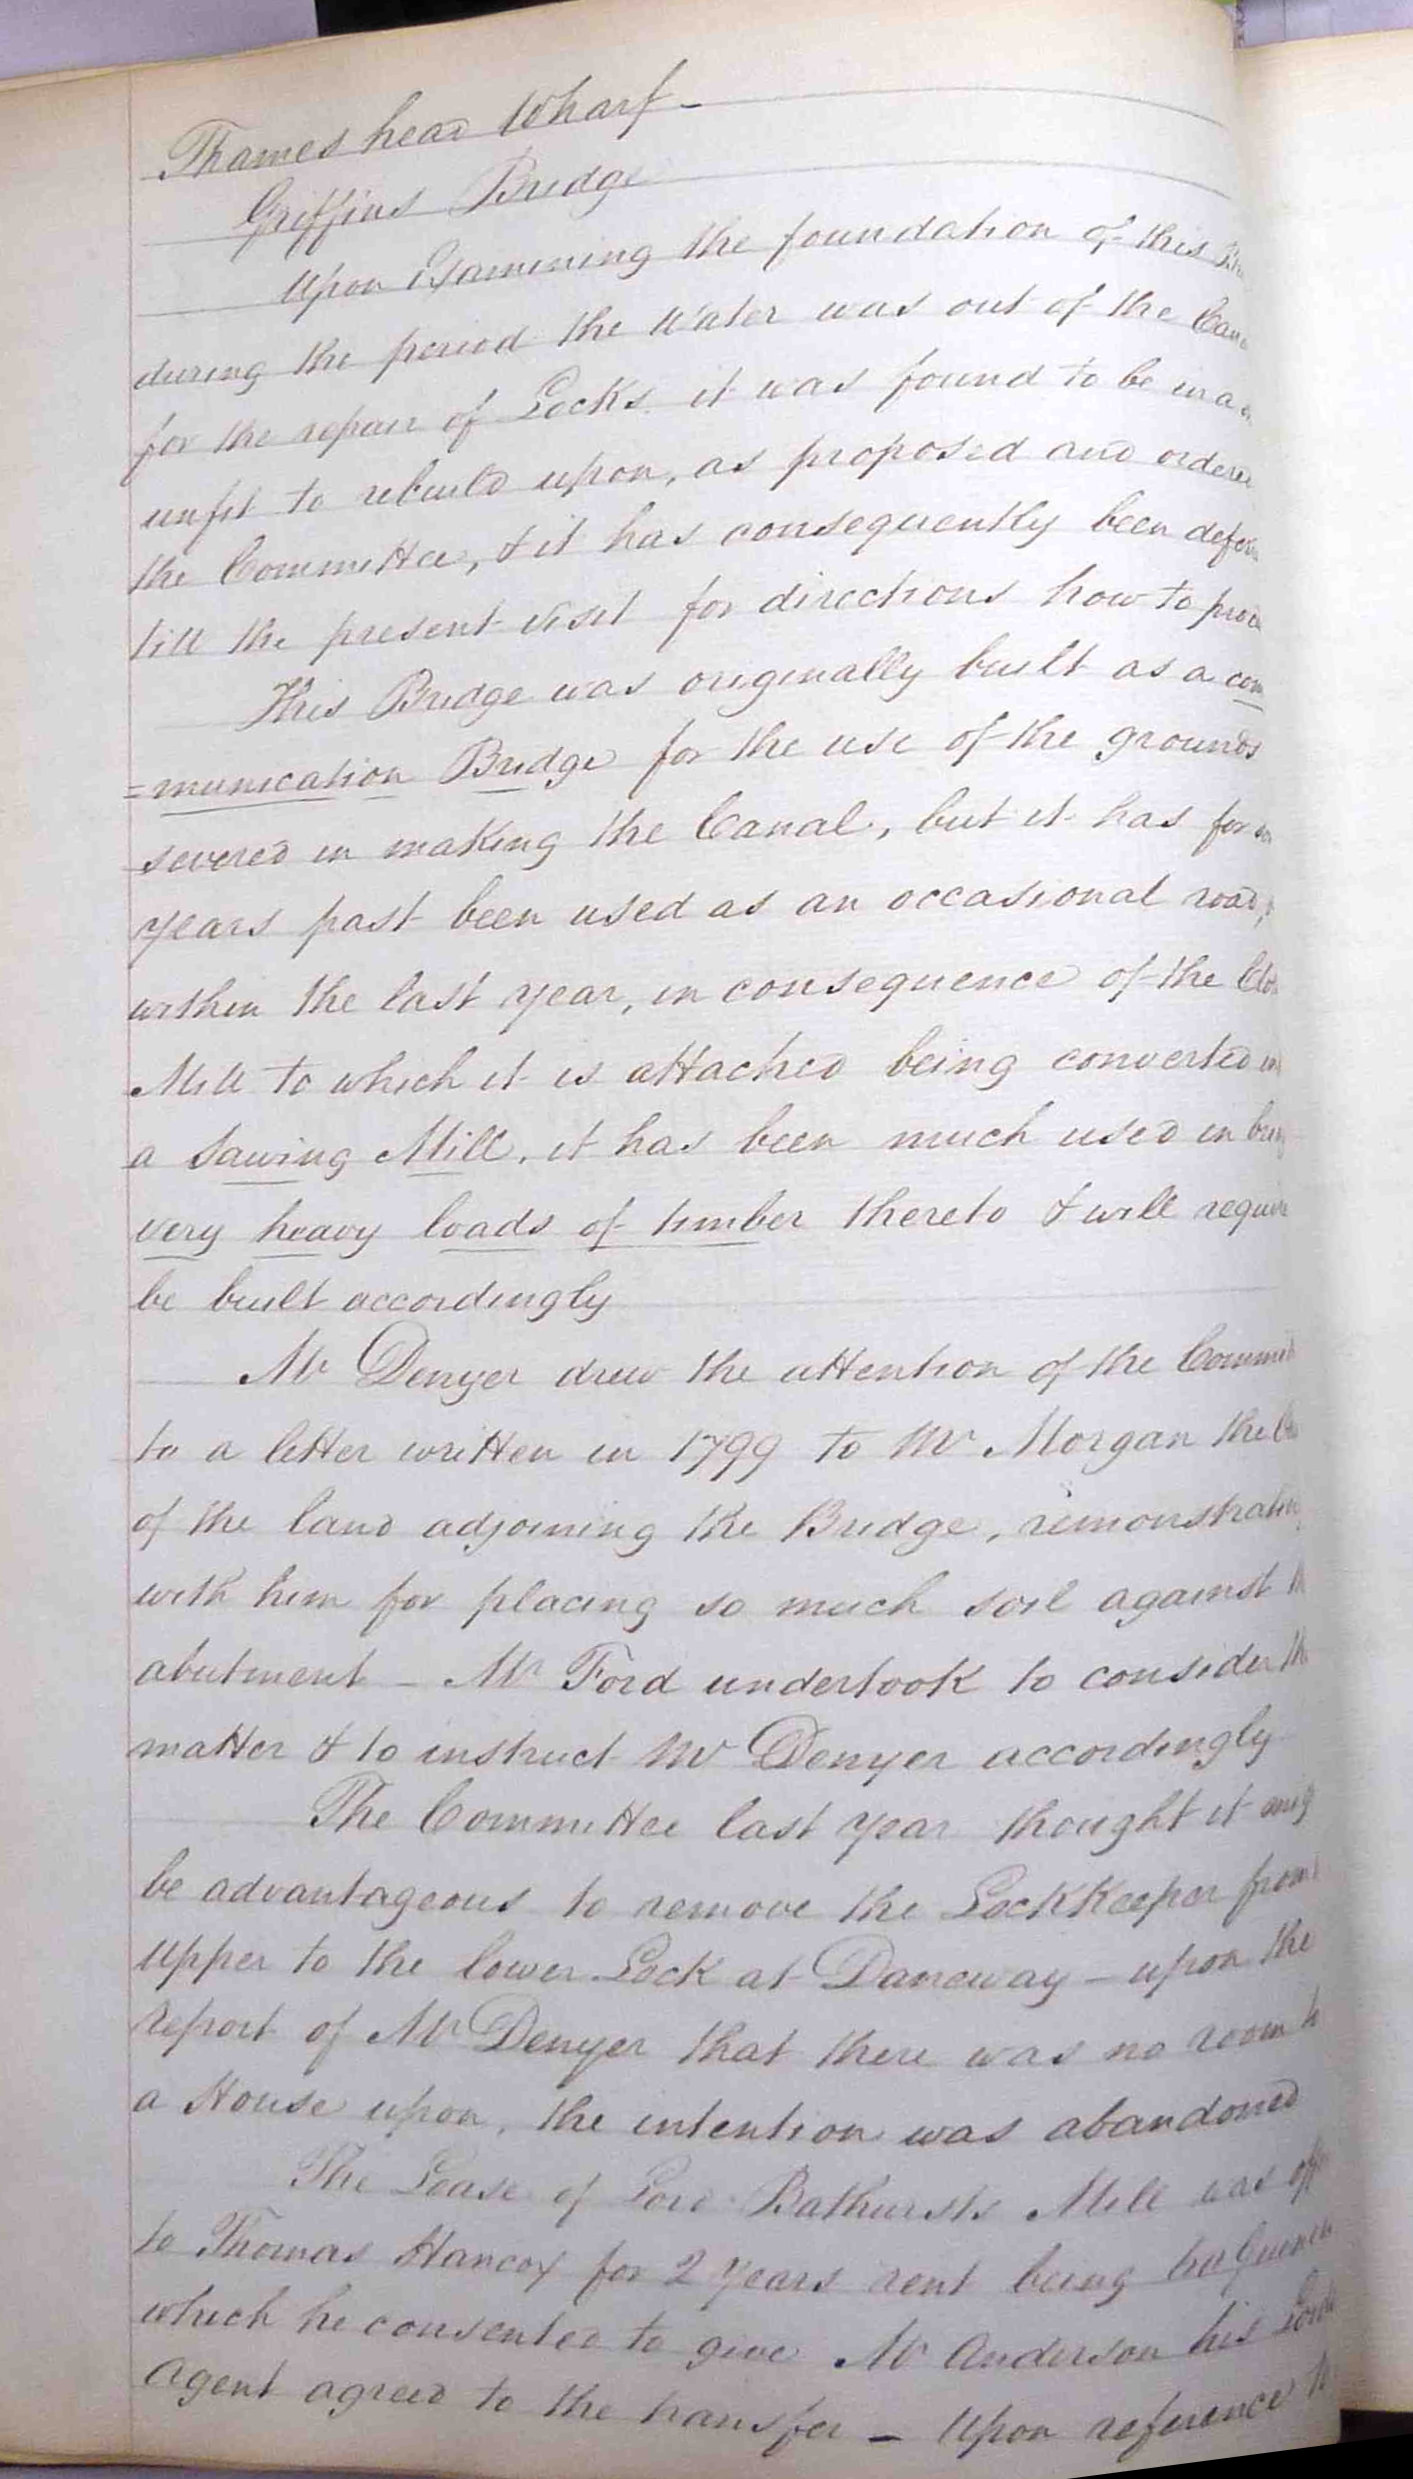 Thames head Wharf -
Griffins Bridge
Upon Examining the foundation of this
during the period the Water was out of the
for the repair of Locks it was found to be in a
unfit to rebuild upon, as proposed and ordered
the Committee, & it has consequently been
till the present visit for directions how to
This Bridge was originally built as a com
=munication Bridge for the use of the grounds
severed in making the Canal, but it has for
years past been used as an occasional road,
within the last year, in consequence of the
Mill to which it is attached being converted
a Sawing Mill, it has been much used in
very heavy loads of timber thereto & will require
be built accordingly
Mr Denyer drew the attention of the
to a letter written in 1799 to Mr Morgan the
of the land adjoining the Bridge, remonstrating
with him for placing so much soil against
abutment - Mr Ford undertook to consider
matter & to instruct Mr Denyer accordingly
The Committee last year thought it
be advantageous to remove the LockKeeper from
Upper to the lower Lock at Daneway - upon the
report of Mr Denyer that there was no room
a House upon, the intention was abandoned
The Lease of Lord Bathursts Mill was
to Thomas Hancox for 2 Years rent being
which he consented to give Mr Anderson his
Agent agreed to the transfer - Upon reference